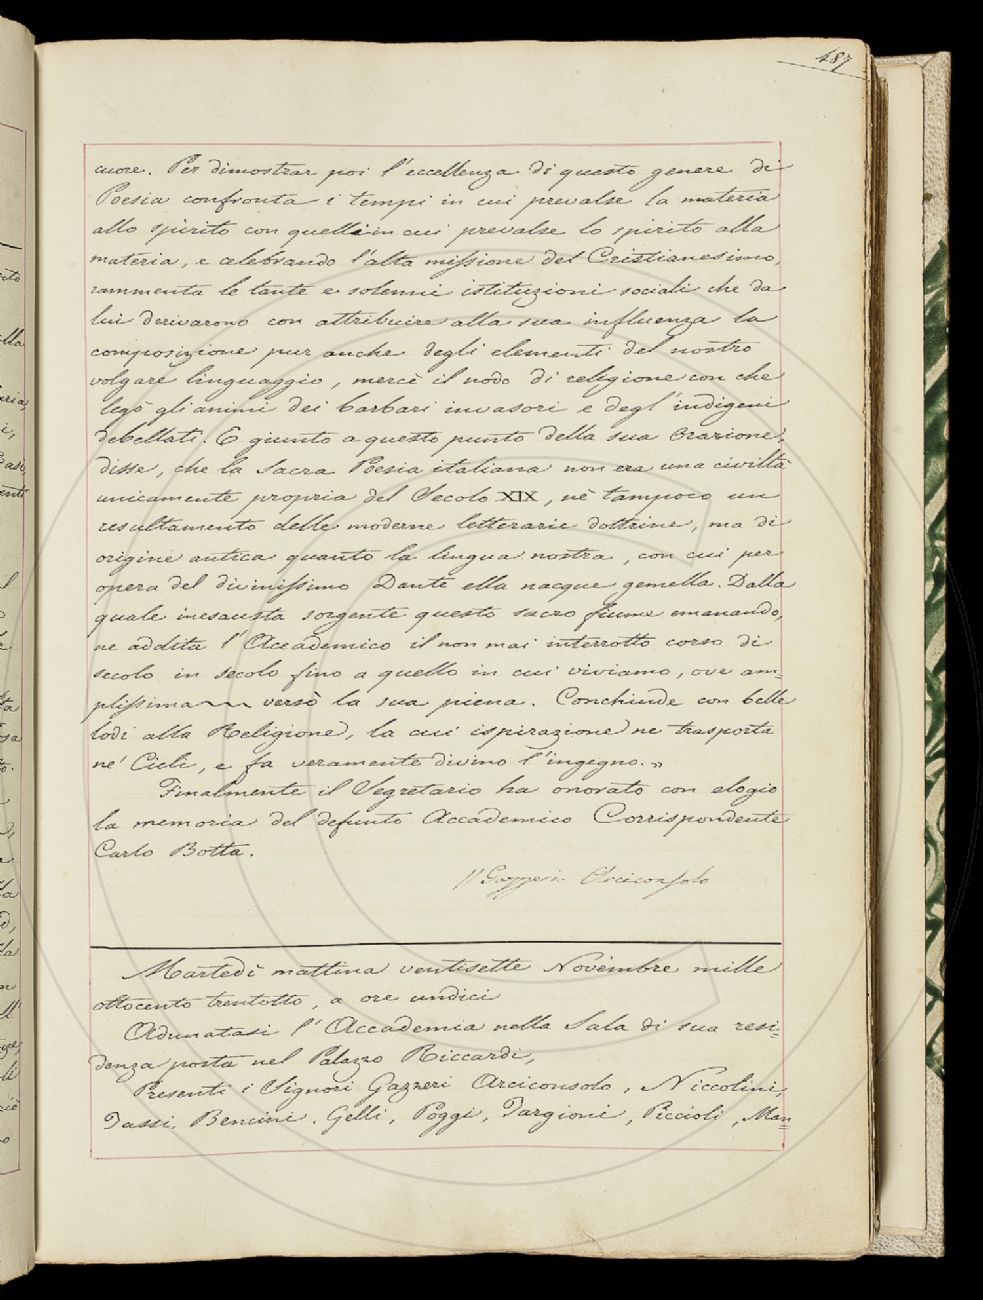 487
cuore. Per dimostrar poi l'eccellenza di questo genere di
Poesia confronta i tempi in cui prevalse la materia
allo spirito con quelli in cui prevalse lo spirito alla
materia, e celebrando l'alta missione del Cristianesimo,
rammenta le tante e solenni istituzioni sociali che da
lui derivarono con attribuire alla sua influenza la
composizione pur anche degli elementi del nostro
volgare linguaggio, mercè il nodo di religione con che
legò gli animi dei barbari invasori e degl'indigeni
debellati. E giunto a questo punto della sua Orazione,
disse, che la Sacra Poesia italiana non era una civiltà
unicamente propria del Secolo XIX, nè tampoco un
resultamento delle moderne letterarie dottrine, ma di
origine antica quanto la lingua nostra, con cui per
opera del divinissimo Dante ella nacque gemella. Dalla
quale inesausta sorgente questo sacro fiume emanando,
ne addita l'Accademico il non mai interrotto corso di
secolo in secolo fino a quello in cui viviamo, ove am=
plissima versò la sua piena. Conchiude con belle
lodi alla Religione, la cui ispirazione ne trasporta
ne' Cieli, e fa veramente divino l'ingegno.»
Finalmente il Segretario ha onorato con elogio
la memoria del defunto Accademico Corrispondente
Carlo Botta.
Gazzeri Arciconsolo
Martedì mattina ventisette Novembre mille
ottocento trentotto, a ore undici
Adunatasi l'Accademia nella Sala di sua resi=
denza posta nel Palazzo Riccardi,
Presenti i Signori Gazzeri Arciconsolo, Niccolini,
Tassi, Bencini, Gelli, Poggi, Targioni, Piccioli, Man=